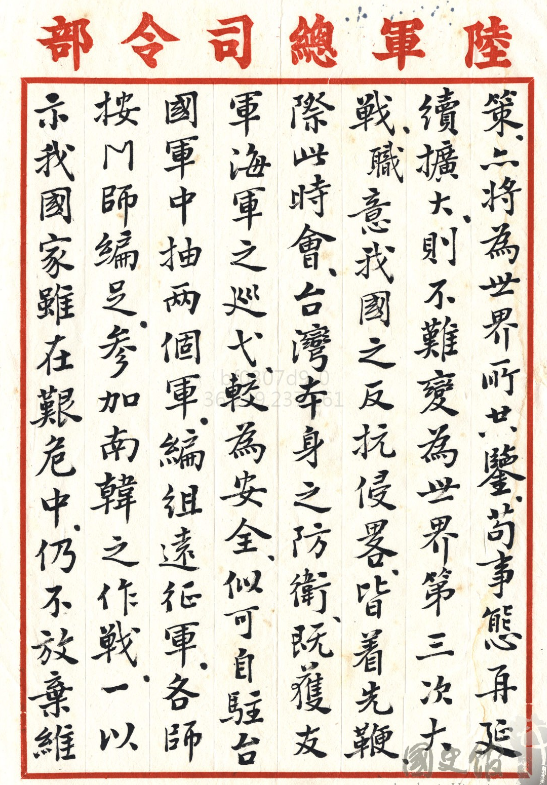 陸軍總司令部
策、亦將為世界所共鑒、苟事態再延
續擴大、則不難變為世界第三次大
戰、職意我國之反抗侵畧、皆着先鞭、
際此時會、台灣本身之防衛、既獲友
軍海軍之巡弋、較為安全、似可自駐台
國軍中抽両個軍、編組遠征軍、各師
按川師編足、參加南韓之作戰、一以
示我國家雖在艱危中、仍不放棄維
國史館